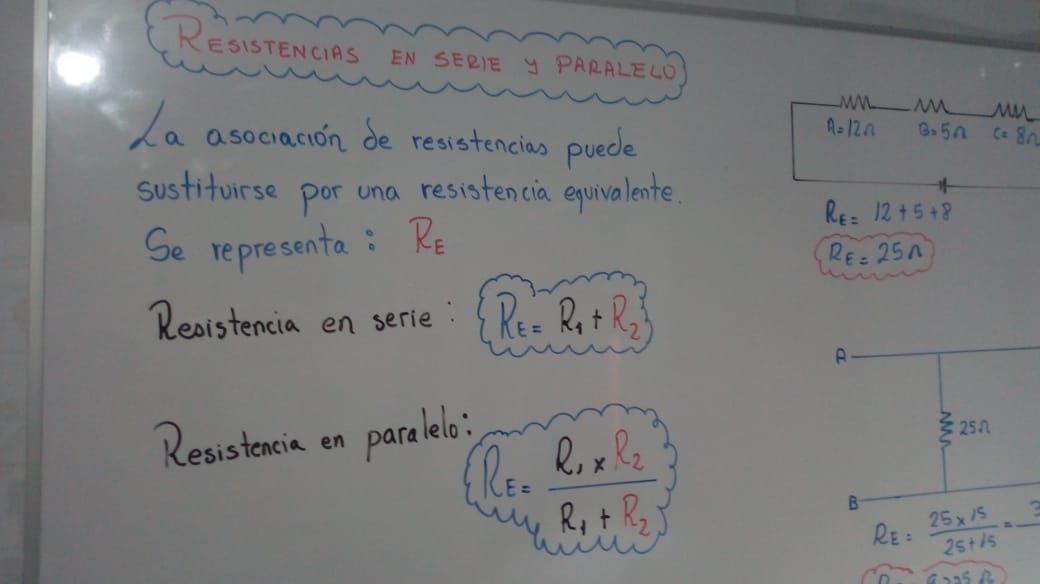 RESISTENCIAS EN SERIE Y PARALELO
La asociación de resistencias puede
sustituirse por una resistencia equivalente.
Se representa: RE
Resistencia en serie: RE = R1 + R2
Resistencia en paralelo: RE = R1 x R2 / R1 + R2
A=12Ω B=5Ω C=8Ω
RE = 12+5+8
RE = 25Ω
A
25Ω
B
RE = 25x15 / 25+15 =